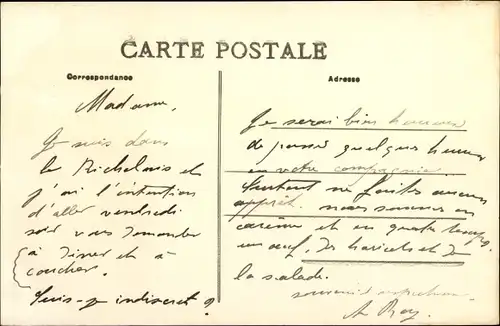 CARTE POSTALE
Correspondance
Adresse
Madame,
Je suis dans
le Richelais et
j'ai l'intention
d'aller vendredi
soir vous demander
à dîner et à
coucher.
Suis-je indiscret ?
Je serai bien heureux
de passer quelques heures
en votre compagnie.
Surtout ne faites aucun
apprêt. nous sommes en
carême et en quatre temps
un œuf, des haricots et de
la salade.
souvenir respectueux
A Roy